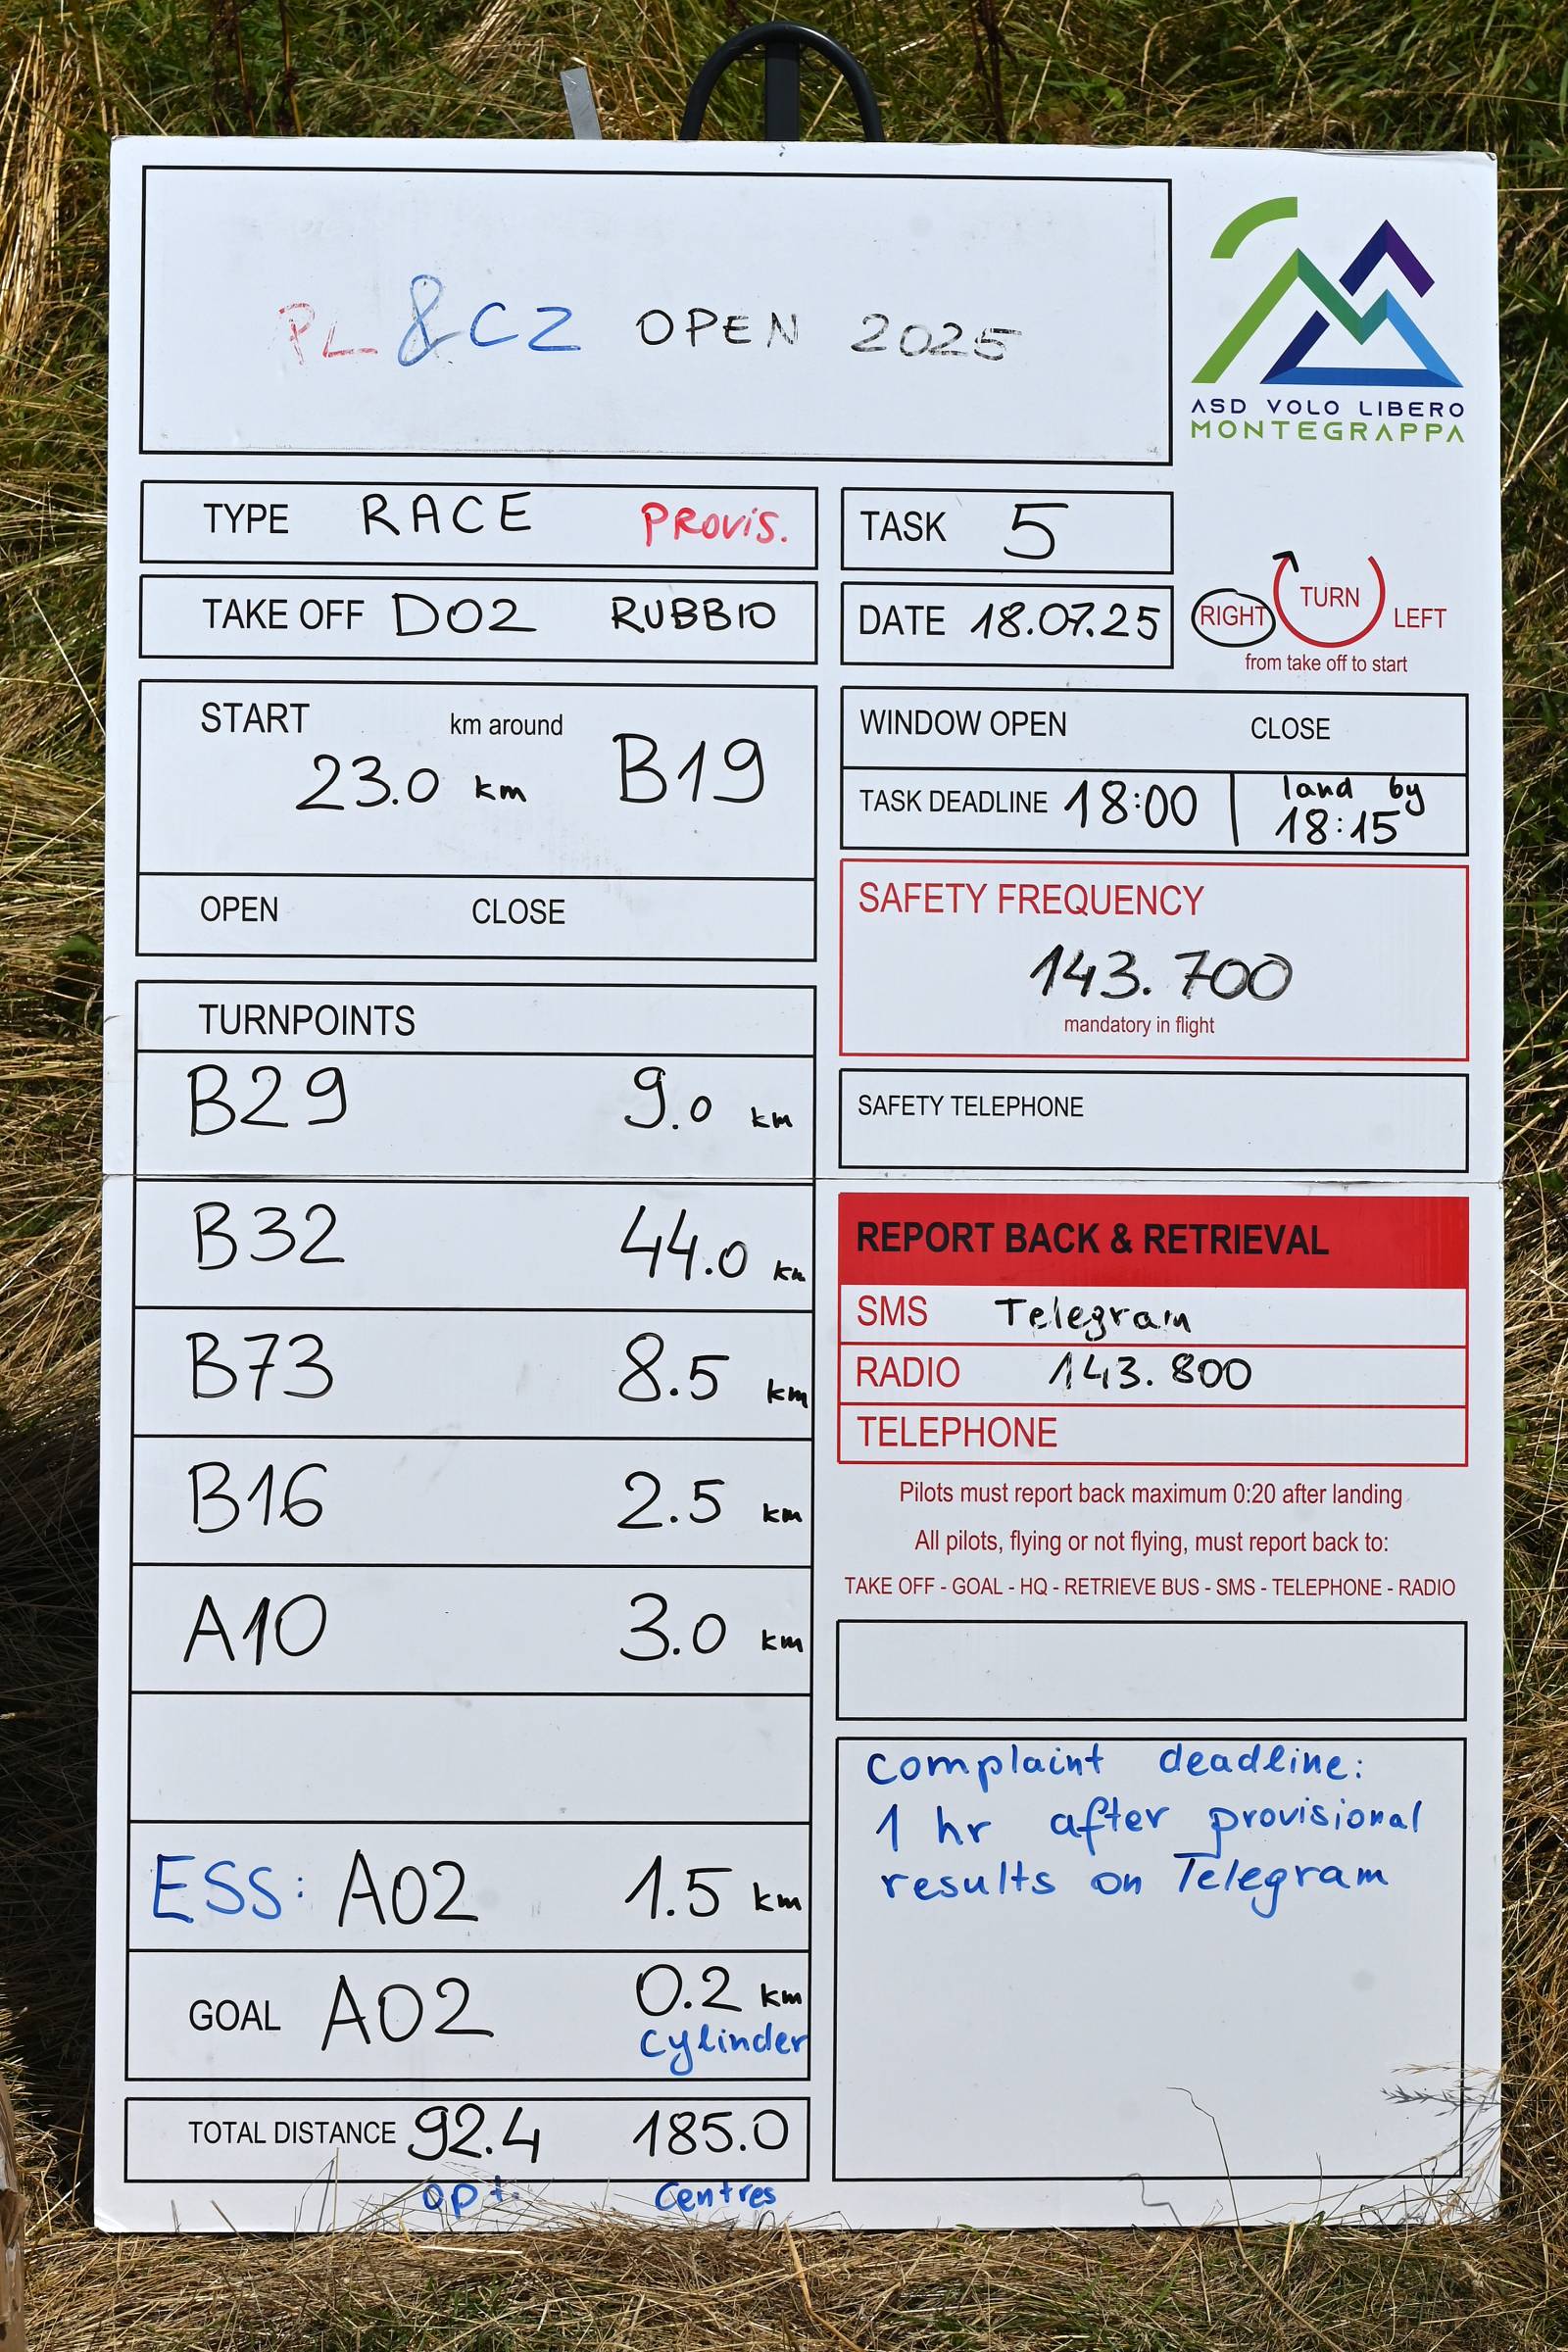 PL & CZ OPEN 2025
ASD VOLO LIBERO
MONTEGRAPPA
TYPE RACE PROVIS.
TASK 5
TAKE OFF D02 RUBBIO
DATE 18.07.25
RIGHT TURN LEFT
from take off to start
START km around
23.0 km B19
OPEN CLOSE
WINDOW OPEN CLOSE
TASK DEADLINE 18:00 | land by
18:15
SAFETY FREQUENCY
143.700
mandatory in flight
SAFETY TELEPHONE
TURNPOINTS
B29 9.0 km
B32 44.0 km
B73 8.5 km
B16 2.5 km
A10 3.0 km
ESS: A02 1.5 km
GOAL A02 0.2 km
Cylinder
TOTAL DISTANCE 92.4 185.0
opt. Centres
REPORT BACK & RETRIEVAL
SMS Telegram
RADIO 143.800
TELEPHONE
Pilots must report back maximum 0:20 after landing
All pilots, flying or not flying, must report back to:
TAKE OFF - GOAL - HQ - RETRIEVE BUS - SMS - TELEPHONE - RADIO
Complaint deadline:
1 hr after provisional
results on Telegram